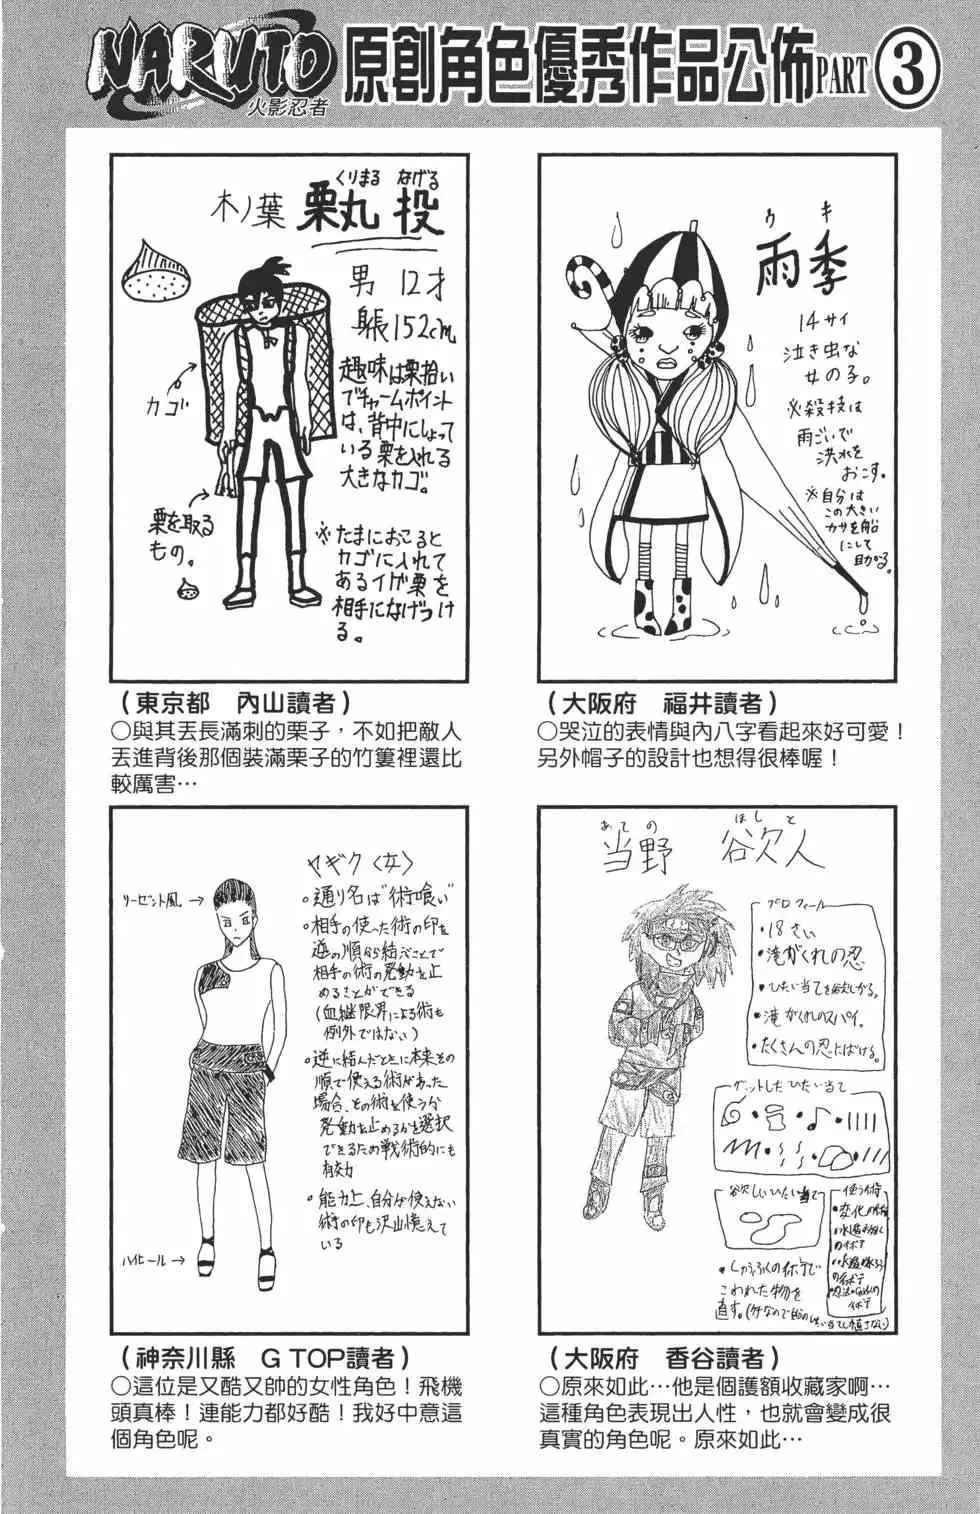 NARUTO
火影忍者
原創角色優秀作品公佈PART③
くりまる なげる
木ノ葉 栗丸 投
男 12才
身長152cm
趣味は栗拾い
でチャームポイント
は、背中にしょって
いる栗を入れる
大きなカゴ。
カゴ
栗を取る
もの。
※たまにおこると
カゴに入れて
あるイガ栗を
相手になげつけ
る。
(東京都 內山讀者)
○與其丟長滿刺的栗子，不如把敵人
丟進背後那個裝滿栗子的竹簍裡還比
較厲害…
ウキ
雨季
14サイ
泣き虫な
女の子。
必殺技は
雨ごいで
洪水を
おこす。
※自分は
この大きい
カサを船
にして
助かる。
(大阪府 福井讀者)
○哭泣的表情與內八字看起來好可愛！
另外帽子的設計也想得很棒喔！
ヤギク〈女〉
リーゼント風
。通り名は"術喰い"
。相手の使った術の印を
逆の順から結ぶことで
相手の術の発動を止
めることができる
(血継限界による術も
例外ではない)
。逆に結んだときに本来その
順で使える術があった
場合、その術を使うか
発動を止めるかを選択
できるため戦術的にも
有効
。能力上、自分が使えない
術の印も沢山憶えて
いる
ハイヒール
(神奈川縣 G TOP讀者)
○這位是又酷又帥的女性角色！飛機
頭真棒！連能力都好酷！我好中意這
個角色呢。
あての ほしと
当野 欲人
プロフィール
・18さい
・滝がくれの忍
・ひたい当てを欲しがる。
・滝がくれのスパイ。
・たくさんの忍にばける。
ゲットしたひたい当て
欲しいひたい当て
使う術
・変化の術
・しゅうふくの術で
こわれた物を
直す。
(大阪府 香谷讀者)
○原來如此…他是個護額收藏家啊…
這種角色表現出人性，也就會變成很
真實的角色呢。原來如此…